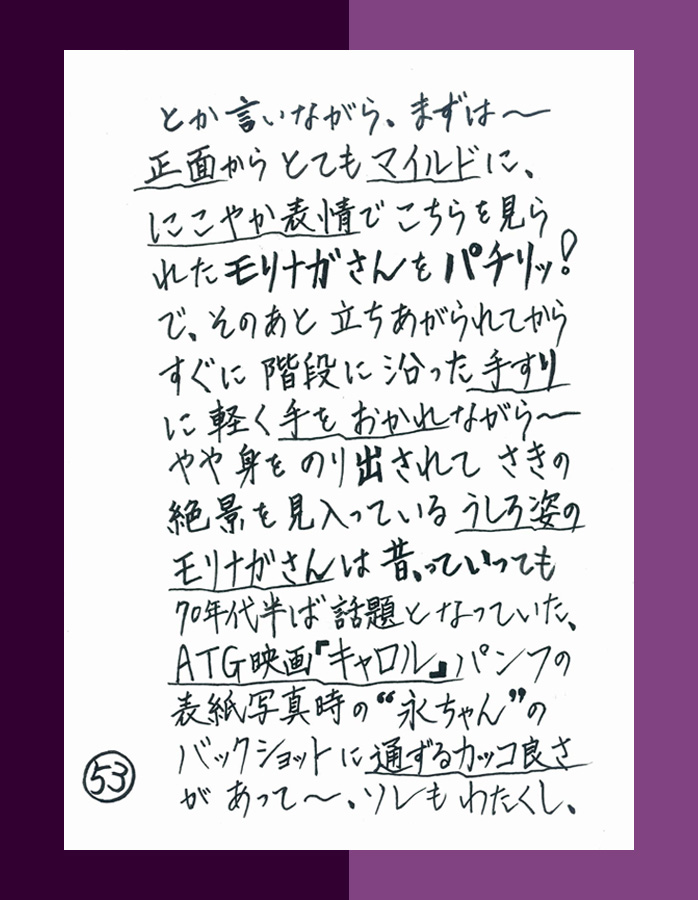 とか言いながら、まずは〜
正面からとてもマイルドに、
にこやか表情でこちらを見ら
れたモリナガさんをパチリッ!
で、そのあと立ちあがられてから
すぐに階段に沿った手すり
に軽く手をおかれながら〜
やや身をのり出されてさきの
絶景を見入っているうしろ姿の
モリナガさんは昔、っていっても
70年代半ば話題となっていた、
ATG映画『キャロル』パンフの
表紙写真時の“永ちゃん”の
バックショットに通ずるカッコ良さ
があって〜、ソレもわたくし、
53